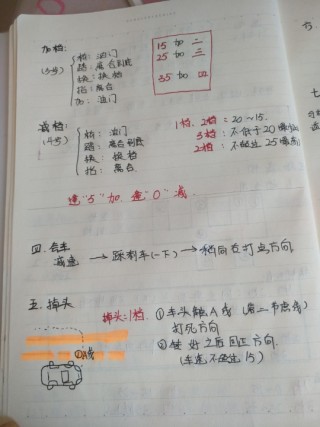 加档：
(5步)
松：油门
踏：离合到底
快：换档
抬：离合
加：油门
15 加 二
25 加 三
35 加 四
减档：
(4步)
松：油门
踏：离合到底
快：换档
抬：离合
1档、2档 = 20～15.
3档：不低于20
2档：不超过25
逢"5"加 逢"0"减
四、会车
减速 → 踩刹车(一下) → 稍向右打点方向
五、掉头
掉头=1档
①车头触A线
打死方向
②健好之后回正方向.
(车速不超过15)
①A线